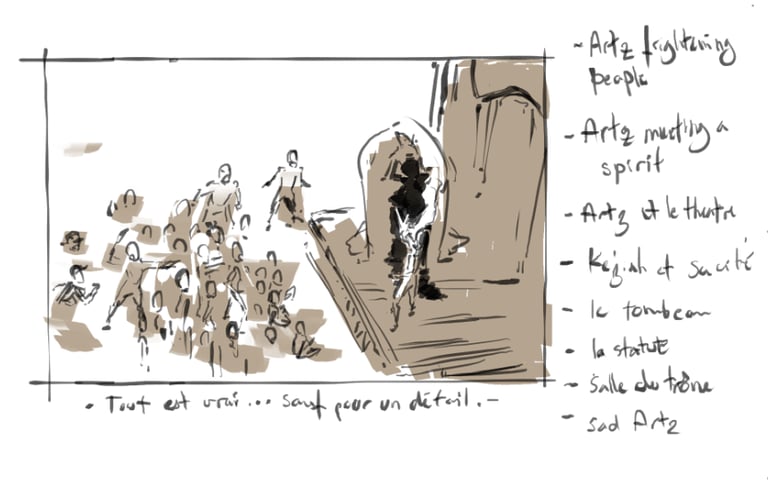 - Artz frightening
people
- Artz meeting a
spirit
- Artz et le théatre
- et sa cité
- le tombeau
- la statut
- Salle du trône
- sad Artz
- Tout est vrai... sauf pour un détail. -